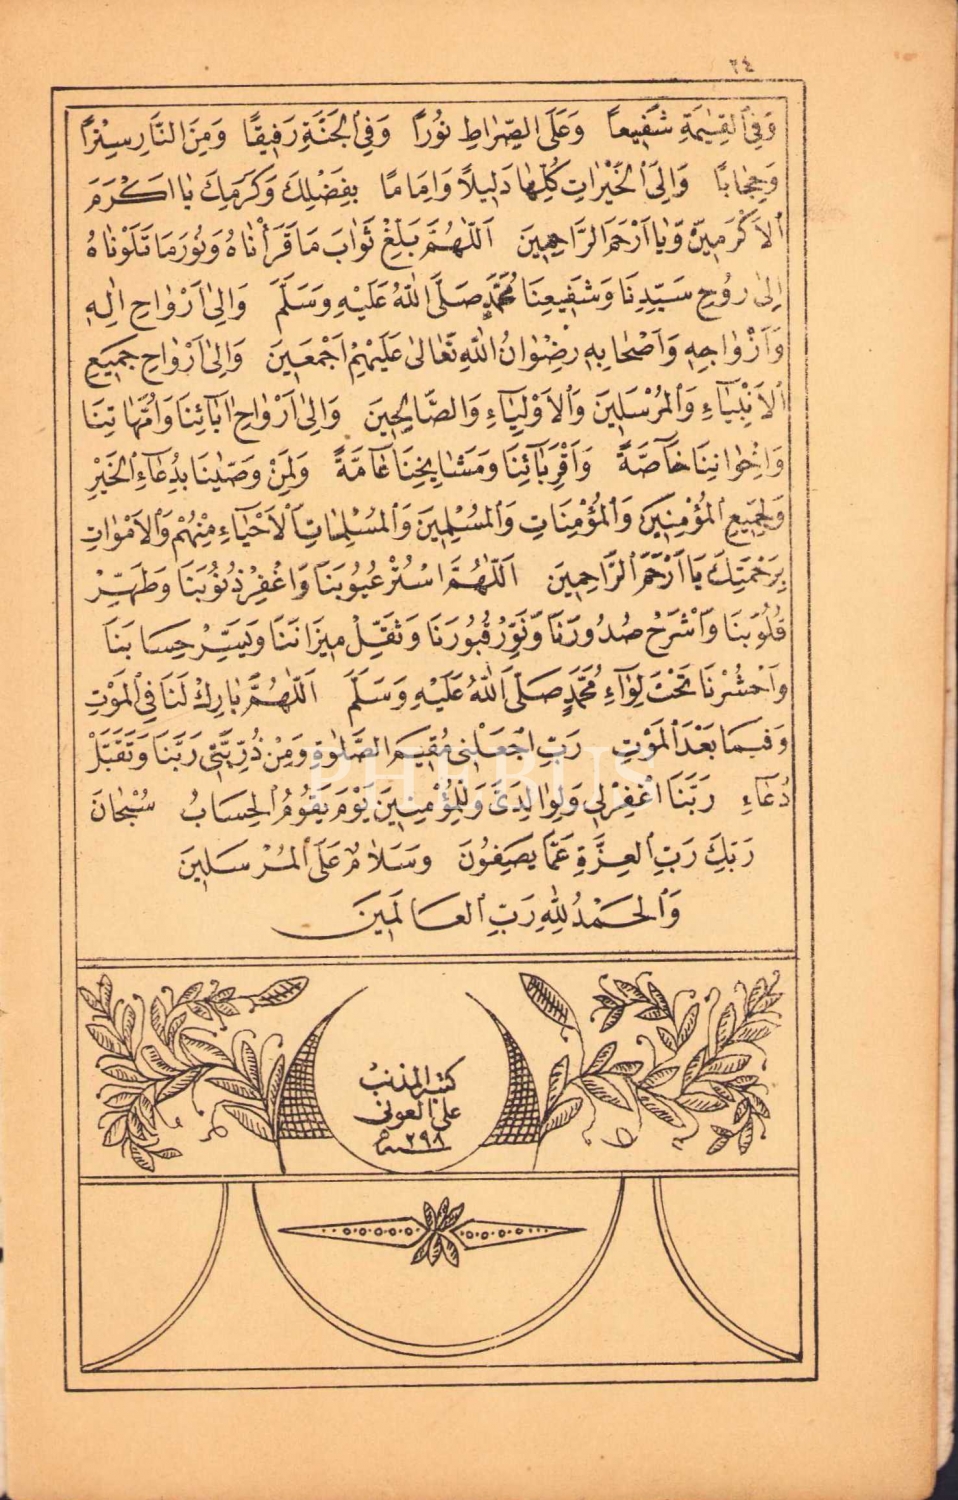 ٢٤
وَفِي الْقِيٰمَةِ شَفِيعاً وَعَلَى الصِّرَاطِ نُوراً وَفِي الْجَنَّةِ رَفِيقًا وَمِنَ النَّارِ سِتْراً
وَحِجَابًا وَاِلَى الْخَيْرَاتِ كُلِّهَا دَلِيلًا وَاِمَامًا بِفَضْلِكَ وَكَرَمِكَ يَا اَكْرَمَ
الْاَكْرَمِينَ وَيَا اَرْحَمَ الرَّاحِمِينَ اَللّٰهُمَّ بَلِّغْ ثَوَابَ مَا قَرَأْنَاهُ وَنُورَ مَا تَلَوْنَاهُ
اِلٰى رُوحِ سَيِّدِنَا وَشَفِيعِنَا مُحَمَّدٍ صَلَّى اللّٰهُ عَلَيْهِ وَسَلَّمَ وَاِلٰى اَرْوَاحِ اٰلِهِ
وَاَزْوَاجِهِ وَاَصْحَابِهِ رِضْوَانُ اللّٰهِ تَعَالٰى عَلَيْهِمْ اَجْمَعِينَ وَاِلٰى اَرْوَاحِ جَمِيعِ
الْاَنْبِيَاءِ وَالْمُرْسَلِينَ وَالْاَوْلِيَاءِ وَالصَّالِحِينَ وَاِلٰى اَرْوَاحِ اٰبَائِنَا وَاُمَّهَاتِنَا
وَاِخْوَانِنَا خَاصَّةً وَاَقْرِبَائِنَا وَمَشَايِخِنَا عَامَّةً وَلِمَنْ وَصَّيْنَا بِدُعَاءِ الْخَيْرِ
وَلِجَمِيعِ الْمُؤْمِنِينَ وَالْمُؤْمِنَاتِ وَالْمُسْلِمِينَ وَالْمُسْلِمَاتِ الْاَحْيَاءِ مِنْهُمْ وَالْاَمْوَاتِ
بِرَحْمَتِكَ يَا اَرْحَمَ الرَّاحِمِينَ اَللّٰهُمَّ اسْتُرْ عُيُوبَنَا وَاغْفِرْ ذُنُوبَنَا وَطَهِّرْ
قُلُوبَنَا وَاشْرَحْ صُدُورَنَا وَنَوِّرْ قُبُورَنَا وَثَقِّلْ مِيزَانَنَا وَيَسِّرْ حِسَابَنَا
وَاحْشُرْنَا تَحْتَ لِوَاءِ مُحَمَّدٍ صَلَّى اللّٰهُ عَلَيْهِ وَسَلَّمَ اَللّٰهُمَّ بَارِكْ لَنَا فِي الْمَوْتِ
وَفِيمَا بَعْدَ الْمَوْتِ رَبِّ اجْعَلْنِي مُقِيمَ الصَّلٰوةِ وَمِنْ ذُرِّيَّتِي رَبَّنَا وَتَقَبَّلْ
دُعَاءِ رَبَّنَا اغْفِرْ لِي وَلِوَالِدَيَّ وَلِلْمُؤْمِنِينَ يَوْمَ يَقُومُ الْحِسَابُ سُبْحَانَ
رَبِّكَ رَبِّ الْعِزَّةِ عَمَّا يَصِفُونَ وَسَلَامٌ عَلَى الْمُرْسَلِينَ
وَالْحَمْدُ لِلّٰهِ رَبِّ الْعَالَمِينَ
PHEBUS
كتبه المذنب
على العونى
سنه ٢٩٨